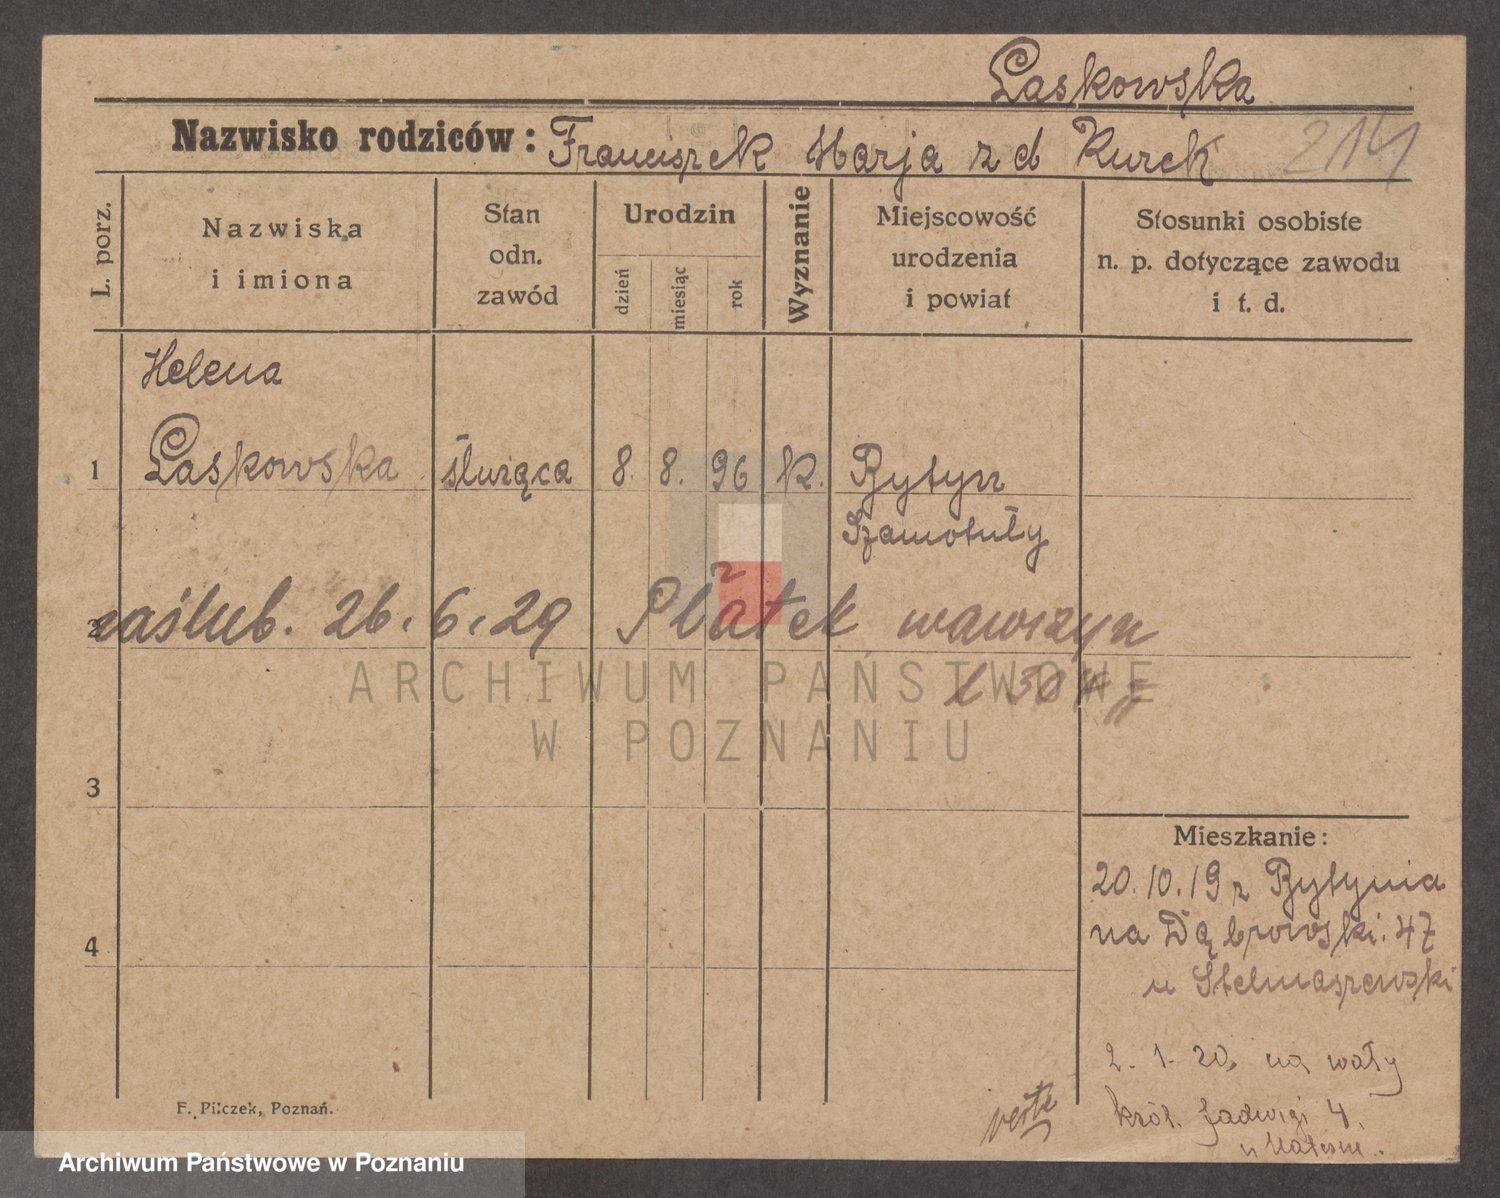 Laskowska
Nazwisko rodziców: Franciszek Marja z d Kurek 214
L. porz.
Nazwiska
i imiona
Stan
odn.
zawód
Urodzin
dzień
miesiąc
rok
Wyznanie
Miejscowość
urodzenia
i powiat
Stosunki osobiste
n. p. dotyczące zawodu
i t. d.
Helena
1 Laskowska służąca 8. 8. 96 k. Bytyn
Szamotuły
2 zaślub. 26.6.29 Płatek wawrzyn
ARCHIWUM PAŃSTWOWE
W POZNANIU
3
Mieszkanie:
20.10.19 z Bytynia
na Dąbrowski. 47
u Stelmaszewski
4
2. 1. 20, na wały
król. Jadwigi 4.
F. Pilczek, Poznań.
Archiwum Państwowe w Poznaniu